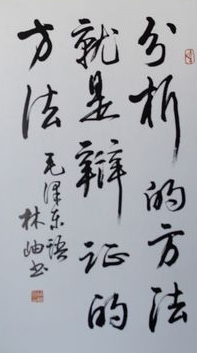 分析的方法
就是辩证的
方法
毛泽东语
林岫书